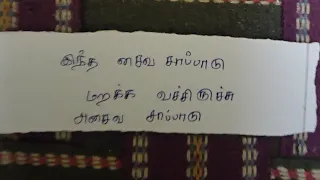 இந்த சைவ சாப்பாடு
மறக்க வச்சிருச்சு
அசைவ சாப்பாடு